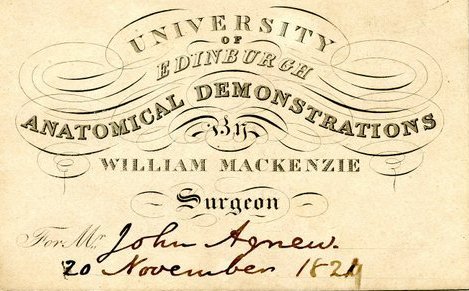 UNIVERSITY
OF
EDINBURGH
ANATOMICAL DEMONSTRATIONS
By
WILLIAM MACKENZIE
Surgeon
For Mr. John Agnew.
20 November 1824